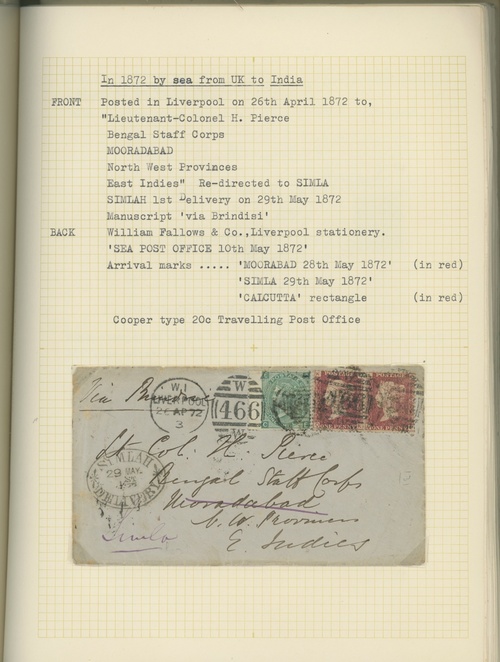 In 1872 by sea from UK to India
FRONT Posted in Liverpool on 26th April 1872 to,
"Lieutenant-Colonel H. Pierce
Bengal Staff Corps
MOORADABAD
North West Provinces
East Indies" Re-directed to SIMLA
SIMLAH 1st Delivery on 29th May 1872
Manuscript 'via Brindisi'
BACK William Fallows & Co.,Liverpool stationery.
'SEA POST OFFICE 10th May 1872'
Arrival marks ..... 'MOORABAD 28th May 1872' (in red)
'SIMLA 29th May 1872'
'CALCUTTA' rectangle (in red)
Cooper type 20c Travelling Post Office
Via Brindisi
W1
LIVERPOOL
26 AP 72
3
W
466
Lt Col. H. Pierce
Bengal Staff Corps
Moradabad
N. W. Provinces
E. Indies
SIMLAH
29 MAY
Simla